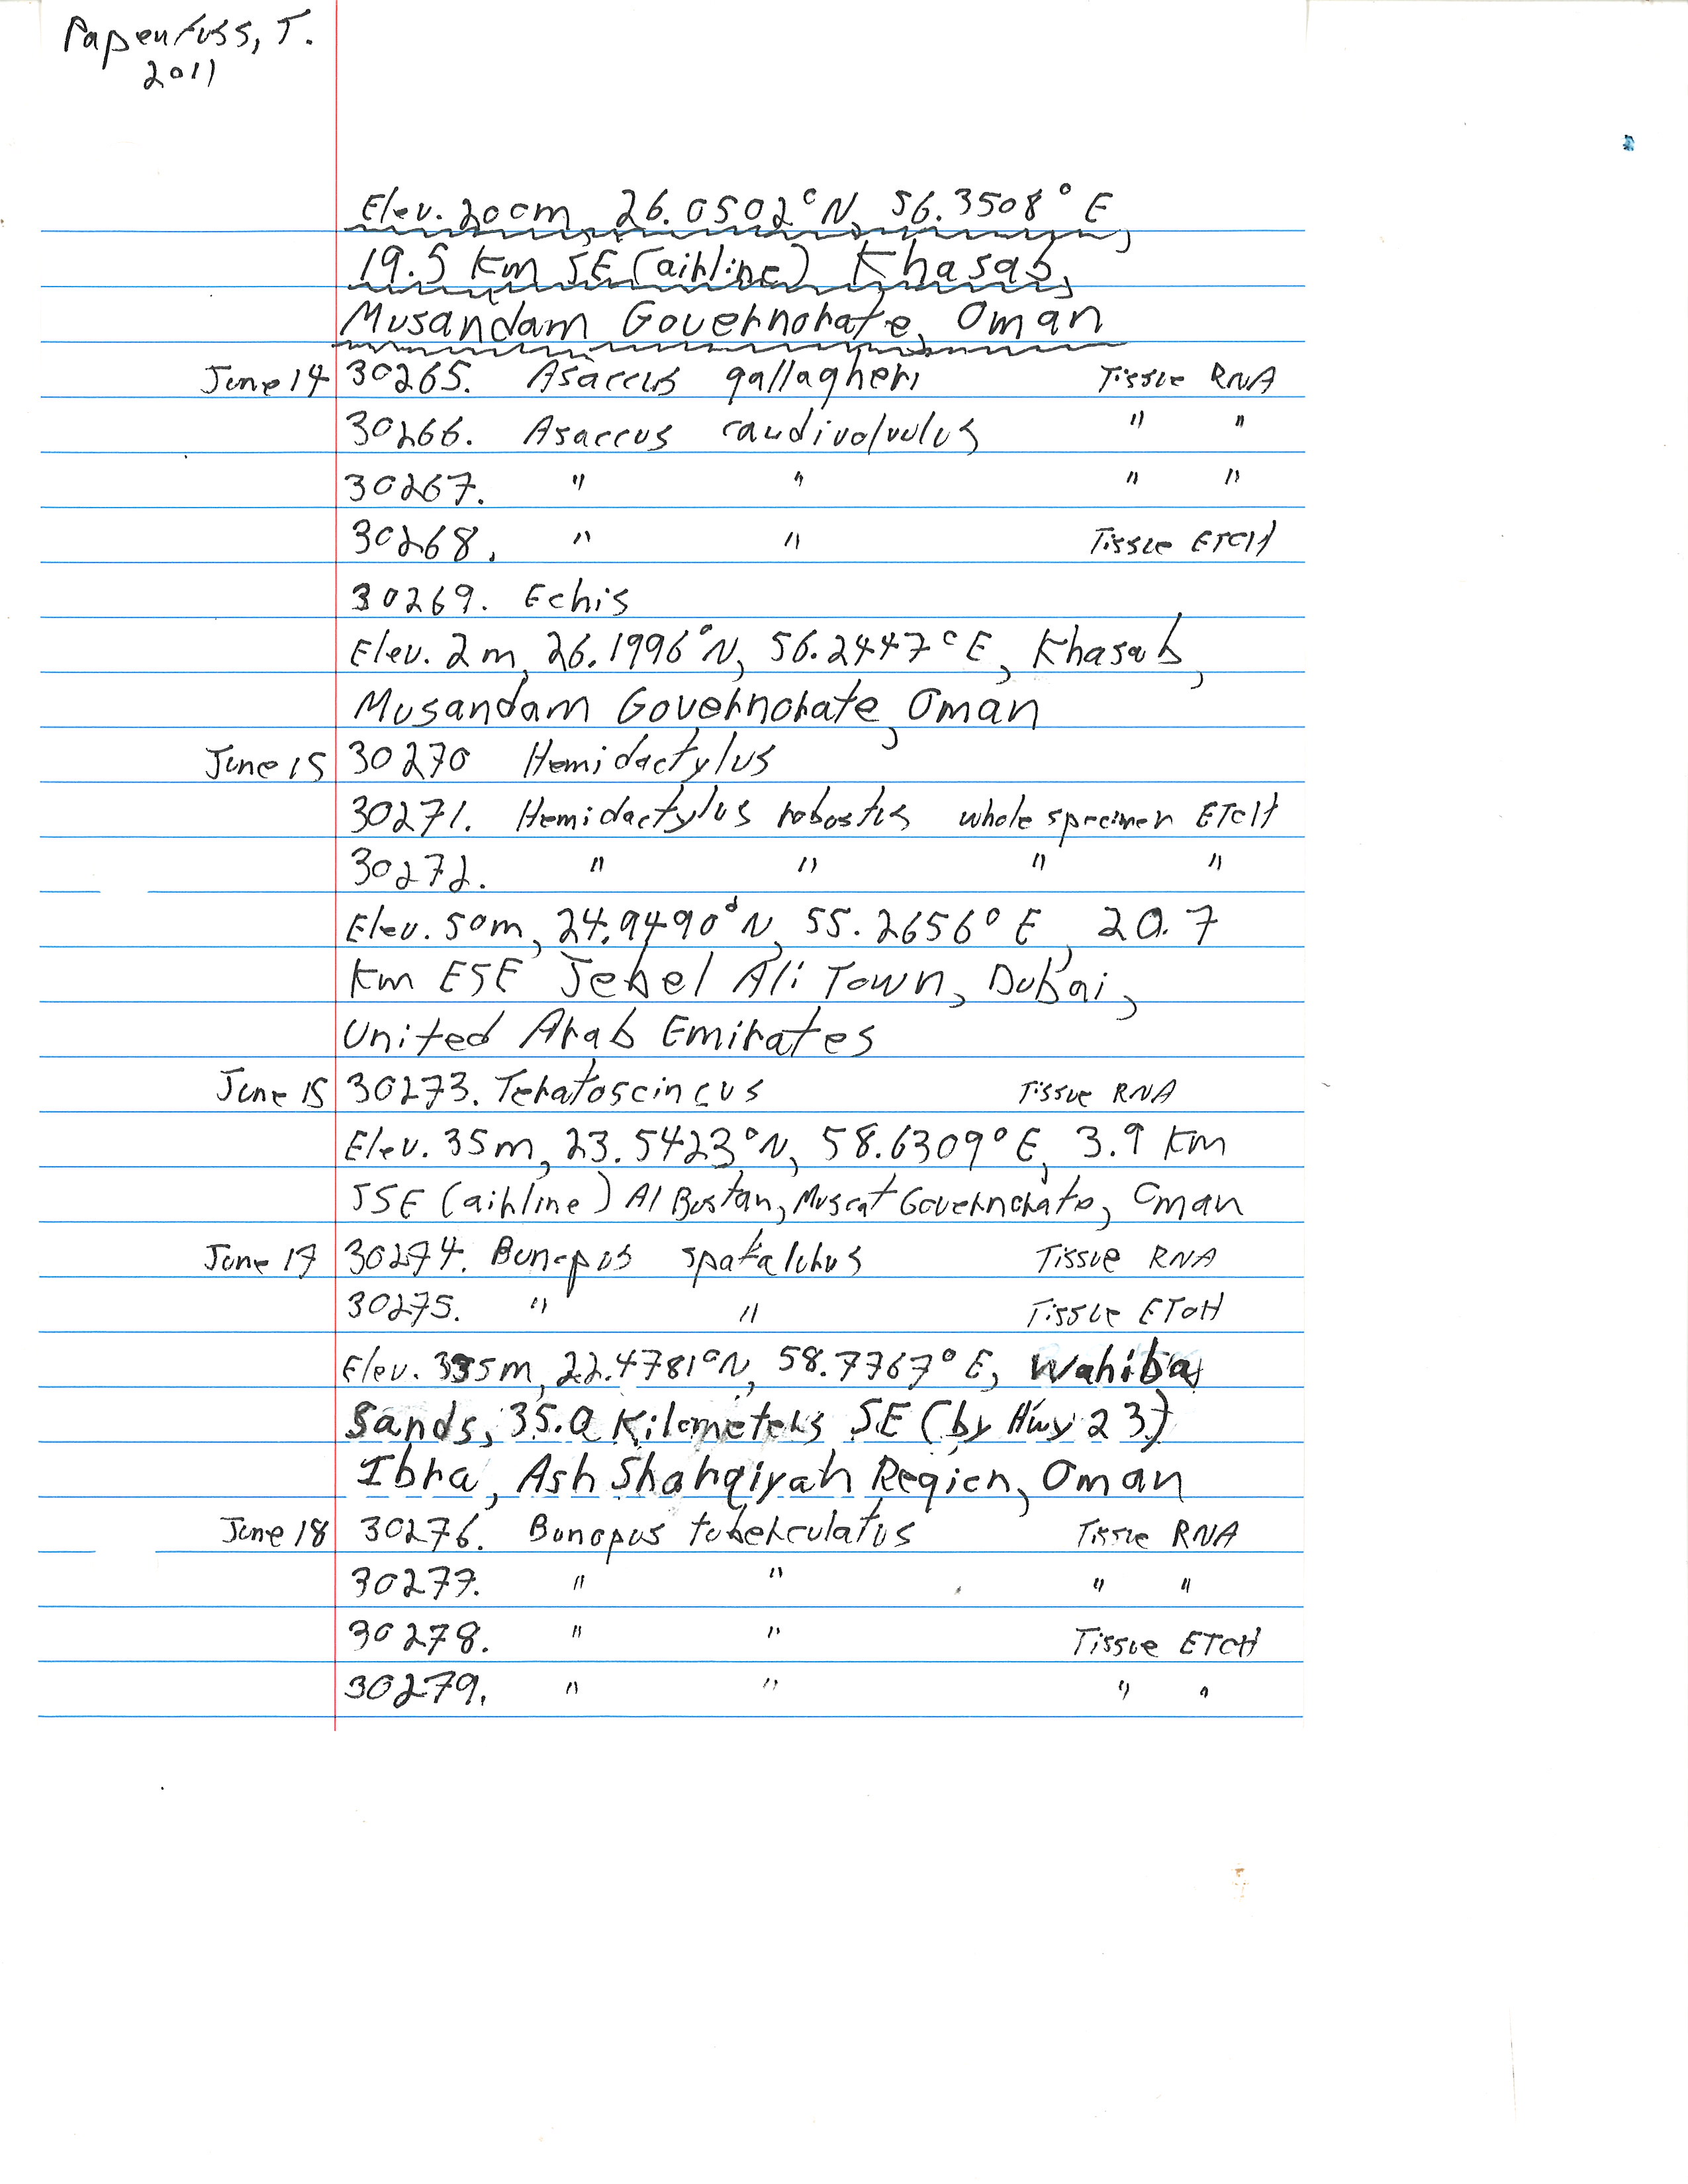 Papenfuss, T.
2011
Elev. 200m, 26.0502°N, 56.3508°E,
19.5 km SE (airline) Khasab,
Musandam Governorate, Oman
June 14 30265. Asaccus gallagheri Tissue RNA
30266. Asaccus caudivolvulus " "
30267. " " " "
30268. " " Tissue ETOH
30269. Echis
Elev. 2m, 26.1996°N, 56.2447°E, Khasab,
Musandam Governorate, Oman
June 15 30270 Hemidactylus
30271. Hemidactylus robustus whole specimen ETOH
30272. " " " "
Elev. 50m, 24.9490°N, 55.2656°E, 20.7
km ESE Jebel Ali Town, Dubai,
United Arab Emirates
June 15 30273. Teratoscincus Tissue RNA
Elev. 35m, 23.5423°N, 58.6309°E, 3.9 km
SSE (airline) Al Bustan, Muscat Governorate, Oman
June 17 30274. Bunopus spatalurus Tissue RNA
30275. " " Tissue ETOH
Elev. 335m, 22.4781°N, 58.7767°E, Wahiba
Sands, 35.0 Kilometers SE (by Hwy 23)
Ibra, Ash Sharqiyah Region, Oman
June 18 30276. Bunopus tuberculatus Tissue RNA
30277. " " " "
30278. " " Tissue ETOH
30279. " " " "